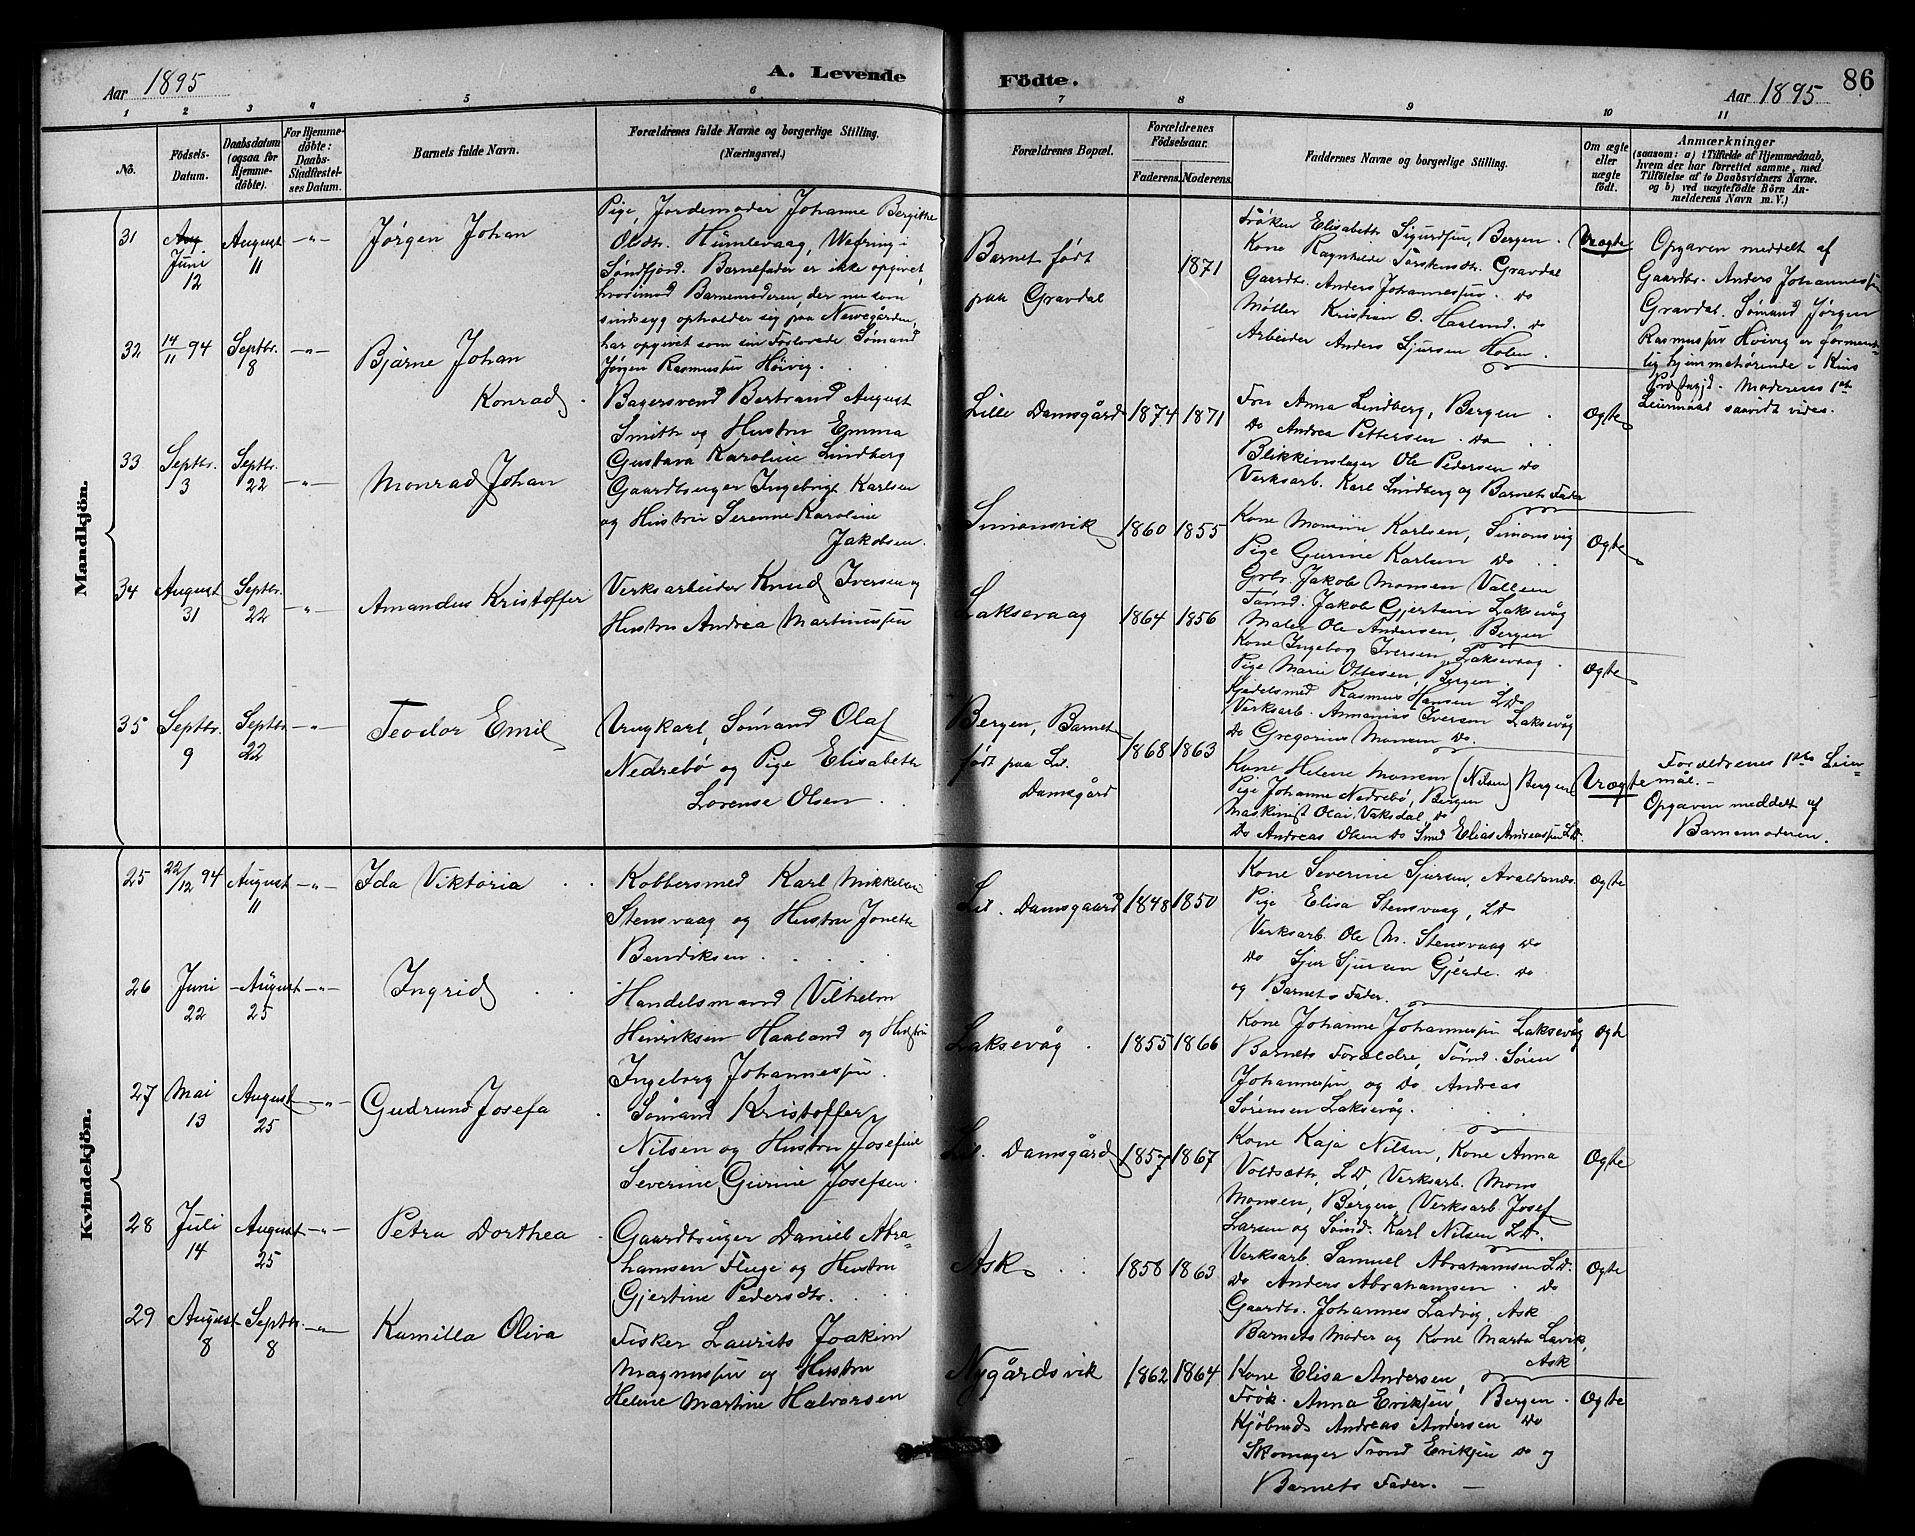 Aar 1895
A. Levende
Födte.
Aar 1895
86
1 2 3 4 5 6 7 8 9 10 11
No.
Födsels-Datum.
Daabsdatum (ogsaa for Hjemmedöbte).
For Hjemmedöbte: Daabs-Stadfæstelses Datum.
Barnets fulde Navn.
Forældrenes fulde Navne og borgerlige Stilling. (Næringsvei.)
Forældrenes Bopæl.
Forældrenes Födselsaar.
Faderens. Moderens.
Faddernes Navne og borgerlige Stilling.
Om ægte eller uægte födt.
Anmærkninger
(saasom: a) i Tilfælde af Hjemmedaab,
hvem der har forrettet samme, med
Tilföielse af to Daabsvidners Navne.
og b) ved uægtefödte Börn An-
melderens Navn m. V.)
Mandkjön.
31
Aug
Juni
12
August
11
-"-
Jørgen Johan
Pige, Jordemoder Johanne Bergitte
Olsdtr. Humlevaag, Wefring i
Søndfjord. Barnefader er ikke opgivet,
hvorimod Barnemoderen, der nu som
sindssyg opholder sig paa Nevegården,
har opgivet som sin Forlovede Sømand
Jørgen Rasmussen Høivig.
Barnet født
paa Gravdal
1871
Frøken Elisabeth Sigurdsen, Bergen.
Kone Ragnhilde Torstensdtr. Gravdal
Gaardbr. Anders Johannessen. Do
Møller Kristian O. Haaland. Do
Arbeider Anders Sjursen Holen.
Uægte
Opgaven meddelt af
Gaardbr. Anders Johannessen
Gravdal. Sømand Jørgen
Rasmussen Høivig er forment-
lig hjemmehørende i Kins
Prestegjd. Moderens 1ste
Leiermaal saavidt vides.
32
14/11 94
Septbr.
8
-"-
Bjarne Johan
Konrad
Bagersvend Bertrand August
Smith og Hustru Emma
Gustava Karoline Lindberg
Lille Damsgård
1874
1871
Fru Anna Lindberg, Bergen
Do Andrea Pettersen. Do
Blikkenslager Ole Pedersen Do
Verksarb. Karl Lindberg og Barnets Fader
Ægte
33
Septbr.
3
Septbr.
22
-"-
Monrad Johan
Gaardbruger Ingebrigt Karlsen
og Hustru Serenne Karoline
Jakobsen.
Simonsvik
1860
1855
Kone Monine Karlsen, Simonsvig
Pige Gurine Karlsen Do
Grbr. Jakob Monsen Vallem
Tømd. Jakob Gjertsen Laksevåg
Maler Ole Andersen, Bergen
Ægte
34
August
31
Septbr.
22
-"-
Amandus Kristoffer
Verksarbeider Knud Iversen og
Hustru Andrea Martinussen
Laksevaag
1864
1856
Kone Ingeborg Iversen Laksevaag.
Pige Marie Ottesen, Bergen.
Kjedelsmed Rasmus Hansen L.D.
Verksarb. Annanias Iversen Laksevåg
Do Gregorius Monsen Do.
Ægte
35
Septbr.
9
Septbr.
22
-"-
Teodor Emil
Ungkarl, Sømand Olaf
Nedrebø og Pige Elisabeth
Lovense Olsen
Bergen, Barnet
født paa Lil.
Damsgård
1868
1863
Kone Helene Monsen (Nilsen) Bergen
Pige Johanne Nedrebø, Bergen
Maskinist Olai Vaksdal, Do
Do Andreas Olsen Do Smed Elias Andreassen L.D.
Uægte
Forældrenes 1ste Leier-
mål.-
Opgaven meddelt af
Barnemoderen.
Kvindekjön.
25
22/12 94
August
11
-"-
Ida Viktoria
Kobbersmed Karl Mikkelsen
Stensvaag og Hustru Jonette
Bendiksen
Lil. Damsgaard
1848
1850
Kone Severine Sjursen, Avaldsnæs.
Pige Elisa Stensvaag, L.D
Verksarb. Ole M. Stensvaag Do
Do Sjur Sjursen Gjerde. Do
og Barnets Fader.
Ægte
26
Juni
22
August
25
-"-
Ingrid
Handelsmand Vilhelm
Henriksen Haaland og Hustru
Ingeborg Johannessen.
Laksevåg
1855
1866
Kone Johanne Johannessen Laksevåg
Barnets Forældre, Tømd. Søren
Johannessen og Do Andreas
Sørensen Laksevåg.
Ægte
27
Mai
13
August
25
-"-
Gudrun Josefa
Sømand Kristoffer
Nilsen og Hustru Josefine
Severine Gurine Josefsen.
Lil. Damsgård
1857
1867
Kone Kaja Nilsen, Kone Anna
Voldsæth, L.D, Verksarb. Mons
Monsen, Bergen, Verksarb Josef
Larsen og Sømd. Karl Nilsen L.D.
Ægte
28
Juli
14
August
25
-"-
Petra Dorthea
Gaardbruger Daniel Abra-
hamsen Fluge og Hustru
Gjertine Pedersdtr.
Ask
1858
1863
Verksarb. Samuel Abrahamsen L.D.
Do Anders Abrahamsen Do
Gaardbr. Johannes Ladvig, Ask
Barnets Moder og Kone Marta Lavik,
Ask
Ægte
29
August
8
Septbr.
8
-"-
Kamilla Oliva
Fisker Laurits Joakim
Magnussen og Hustru
Helene Martine Halvorsen
Nygårdsvik
1862
1864
Kone Elisa Andersen,
Frøk. Anna Eriksen, Bergen
Kjøbmd. Andreas Andersen Do
Skomager Trond Eriksen Do og
Barnets Fader.
Ægte